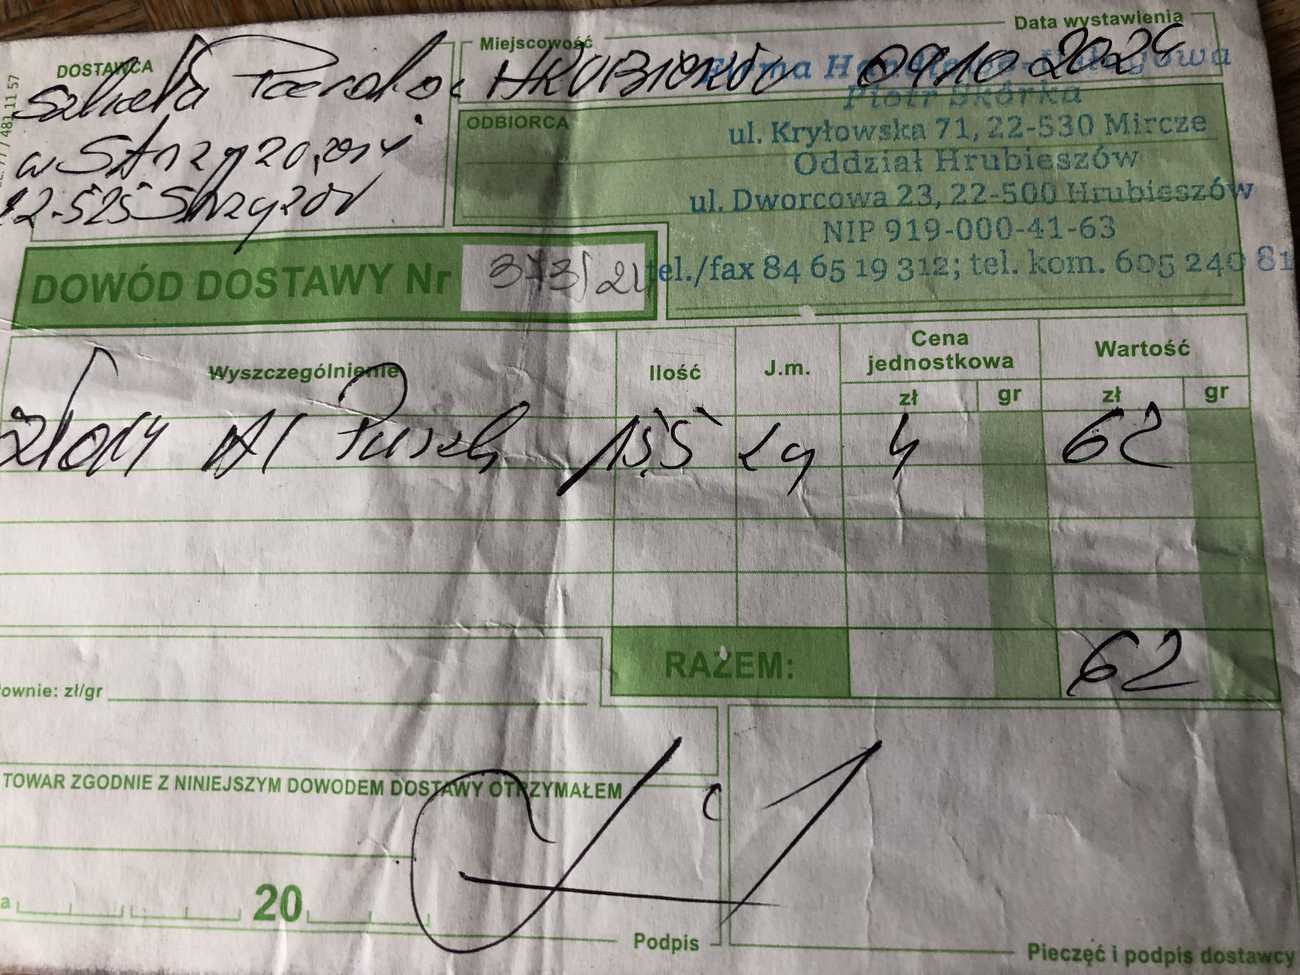 Data wystawienia
DOSTAWCA
Miejscowość
Szkoła
HRUBIESZÓW 09.10.2024
Firma Handlowo-Usługowa
Piotr Skórka
ODBIORCA
w Strzyżowi
ul. Kryłowska 71, 22-530 Mircze
Oddział Hrubieszów
22-525 Strzyżów
ul. Dworcowa 23, 22-500 Hrubieszów
NIP 919-000-41-63
DOWÓD DOSTAWY Nr 373/24
tel./fax 84 65 19 312; tel. kom. 605 240 81
Wyszczególnienie Ilość J.m. Cena jednostkowa Wartość
zł gr zł gr
złom Al Puszk 15,5 kg 4 62
RAZEM: 62
ownie: zł/gr
TOWAR ZGODNIE Z NINIEJSZYM DOWODEM DOSTAWY OTRZYMAŁEM
a 20
Podpis
Pieczęć i podpis dostawcy